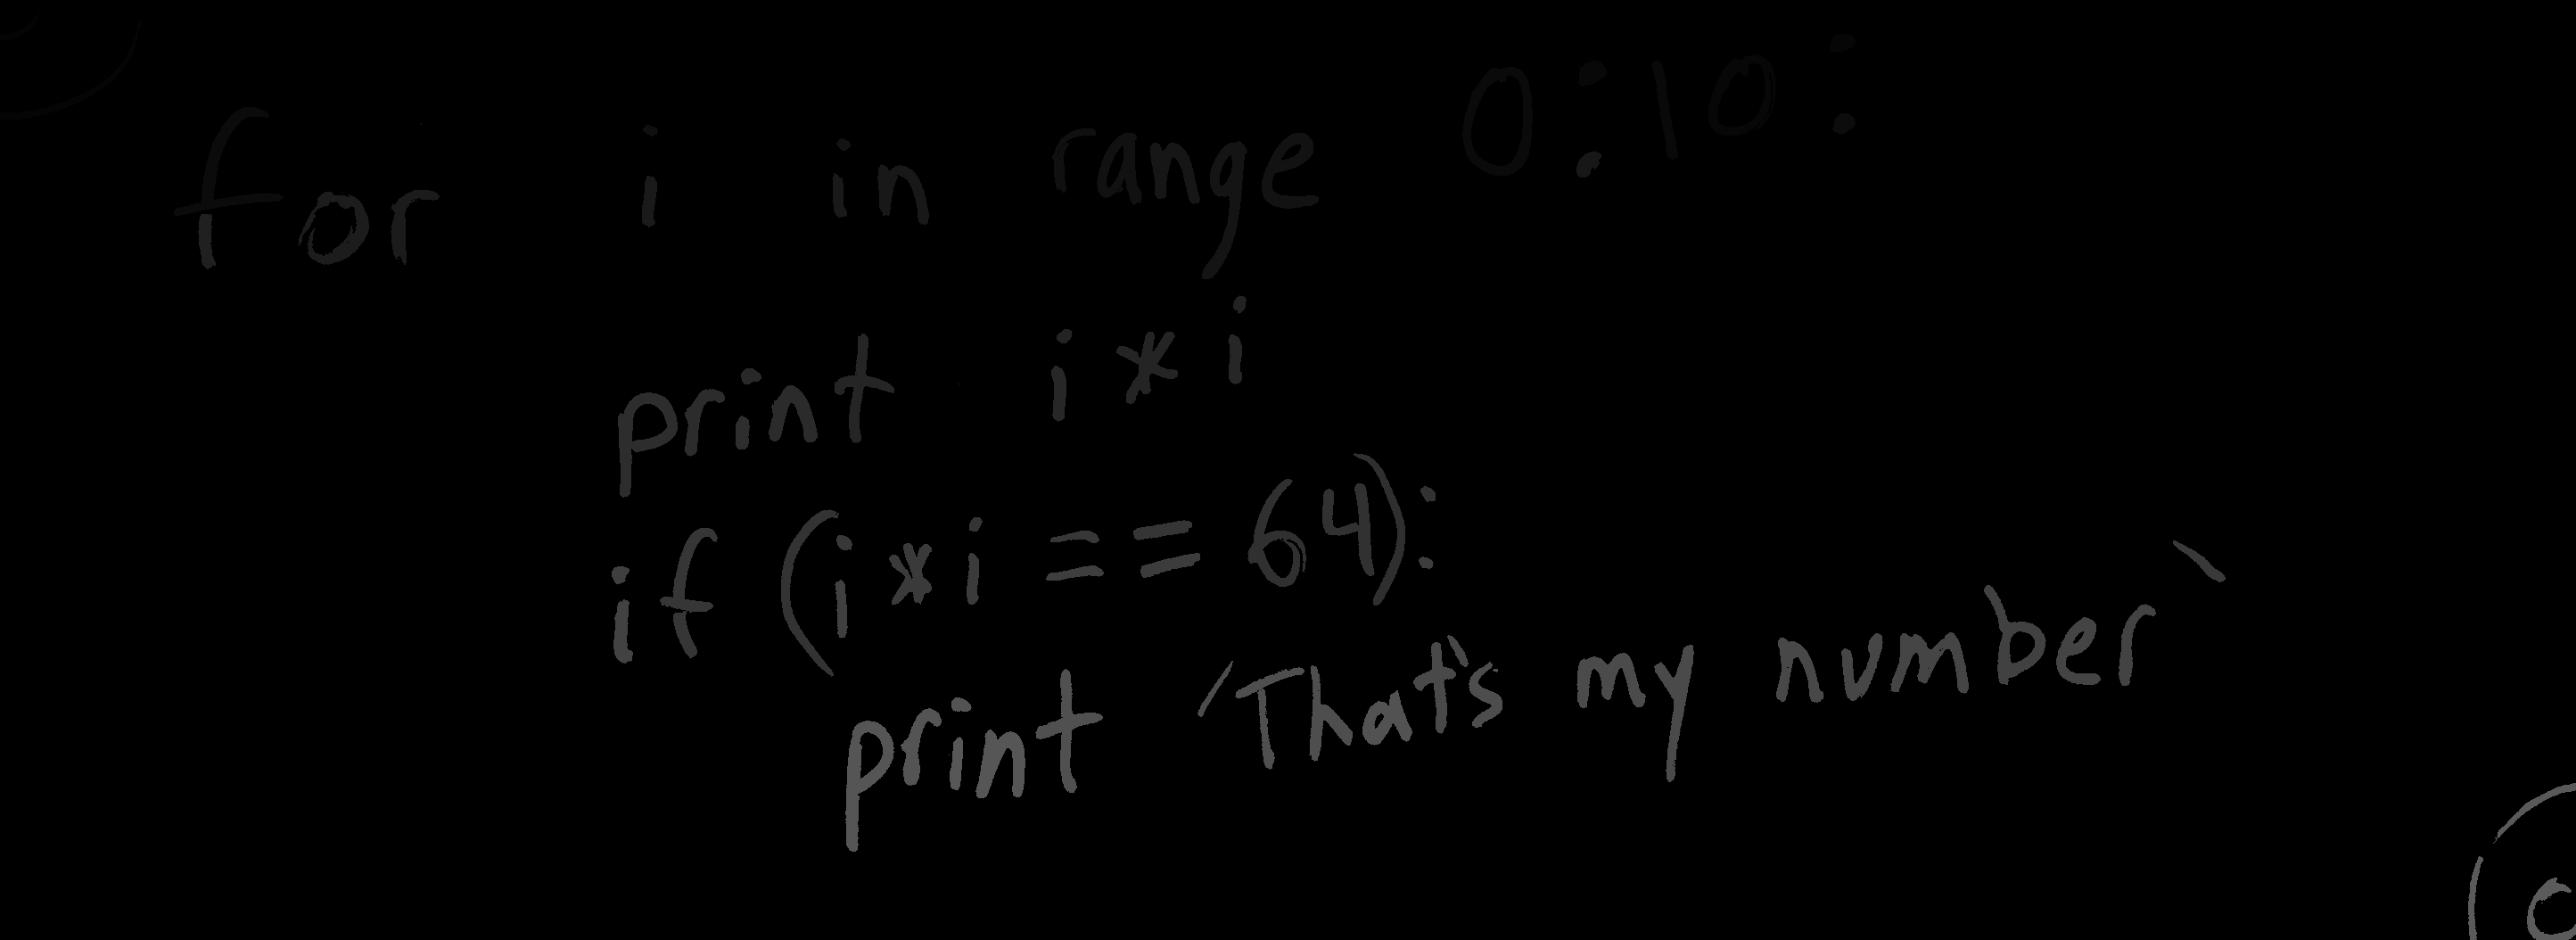 for i in range 0:10:
print i*i
if (i*i == 64):
print 'That's my number'